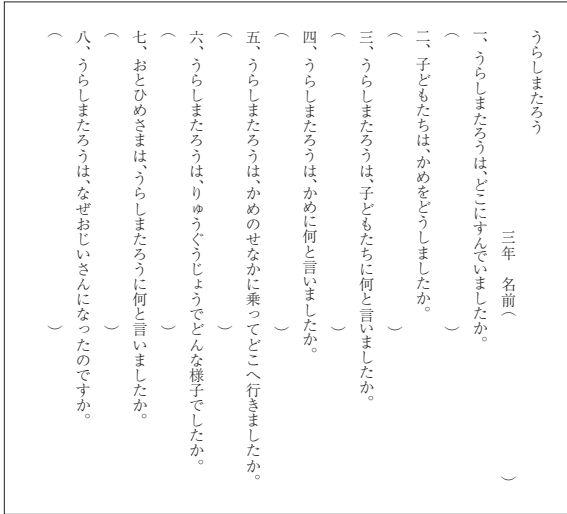 うらしまたろう
三年　名前（　　　　　　　　）
一、うらしまたろうは、どこにすんでいましたか。
（　　　　　　　　）
二、子どもたちは、かめをどうしましたか。
（　　　　　　　　）
三、うらしまたろうは、子どもたちに何と言いましたか。
（　　　　　　　　）
四、うらしまたろうは、かめに何と言いましたか。
（　　　　　　　　）
五、うらしまたろうは、かめのせなかに乗ってどこへ行きましたか。
（　　　　　　　　）
六、うらしまたろうは、りゅうぐうじょうでどんな様子でしたか。
（　　　　　　　　）
七、おとひめさまは、うらしまたろうに何と言いましたか。
（　　　　　　　　）
八、うらしまたろうは、なぜおじいさんになったのですか。
（　　　　　　　　）